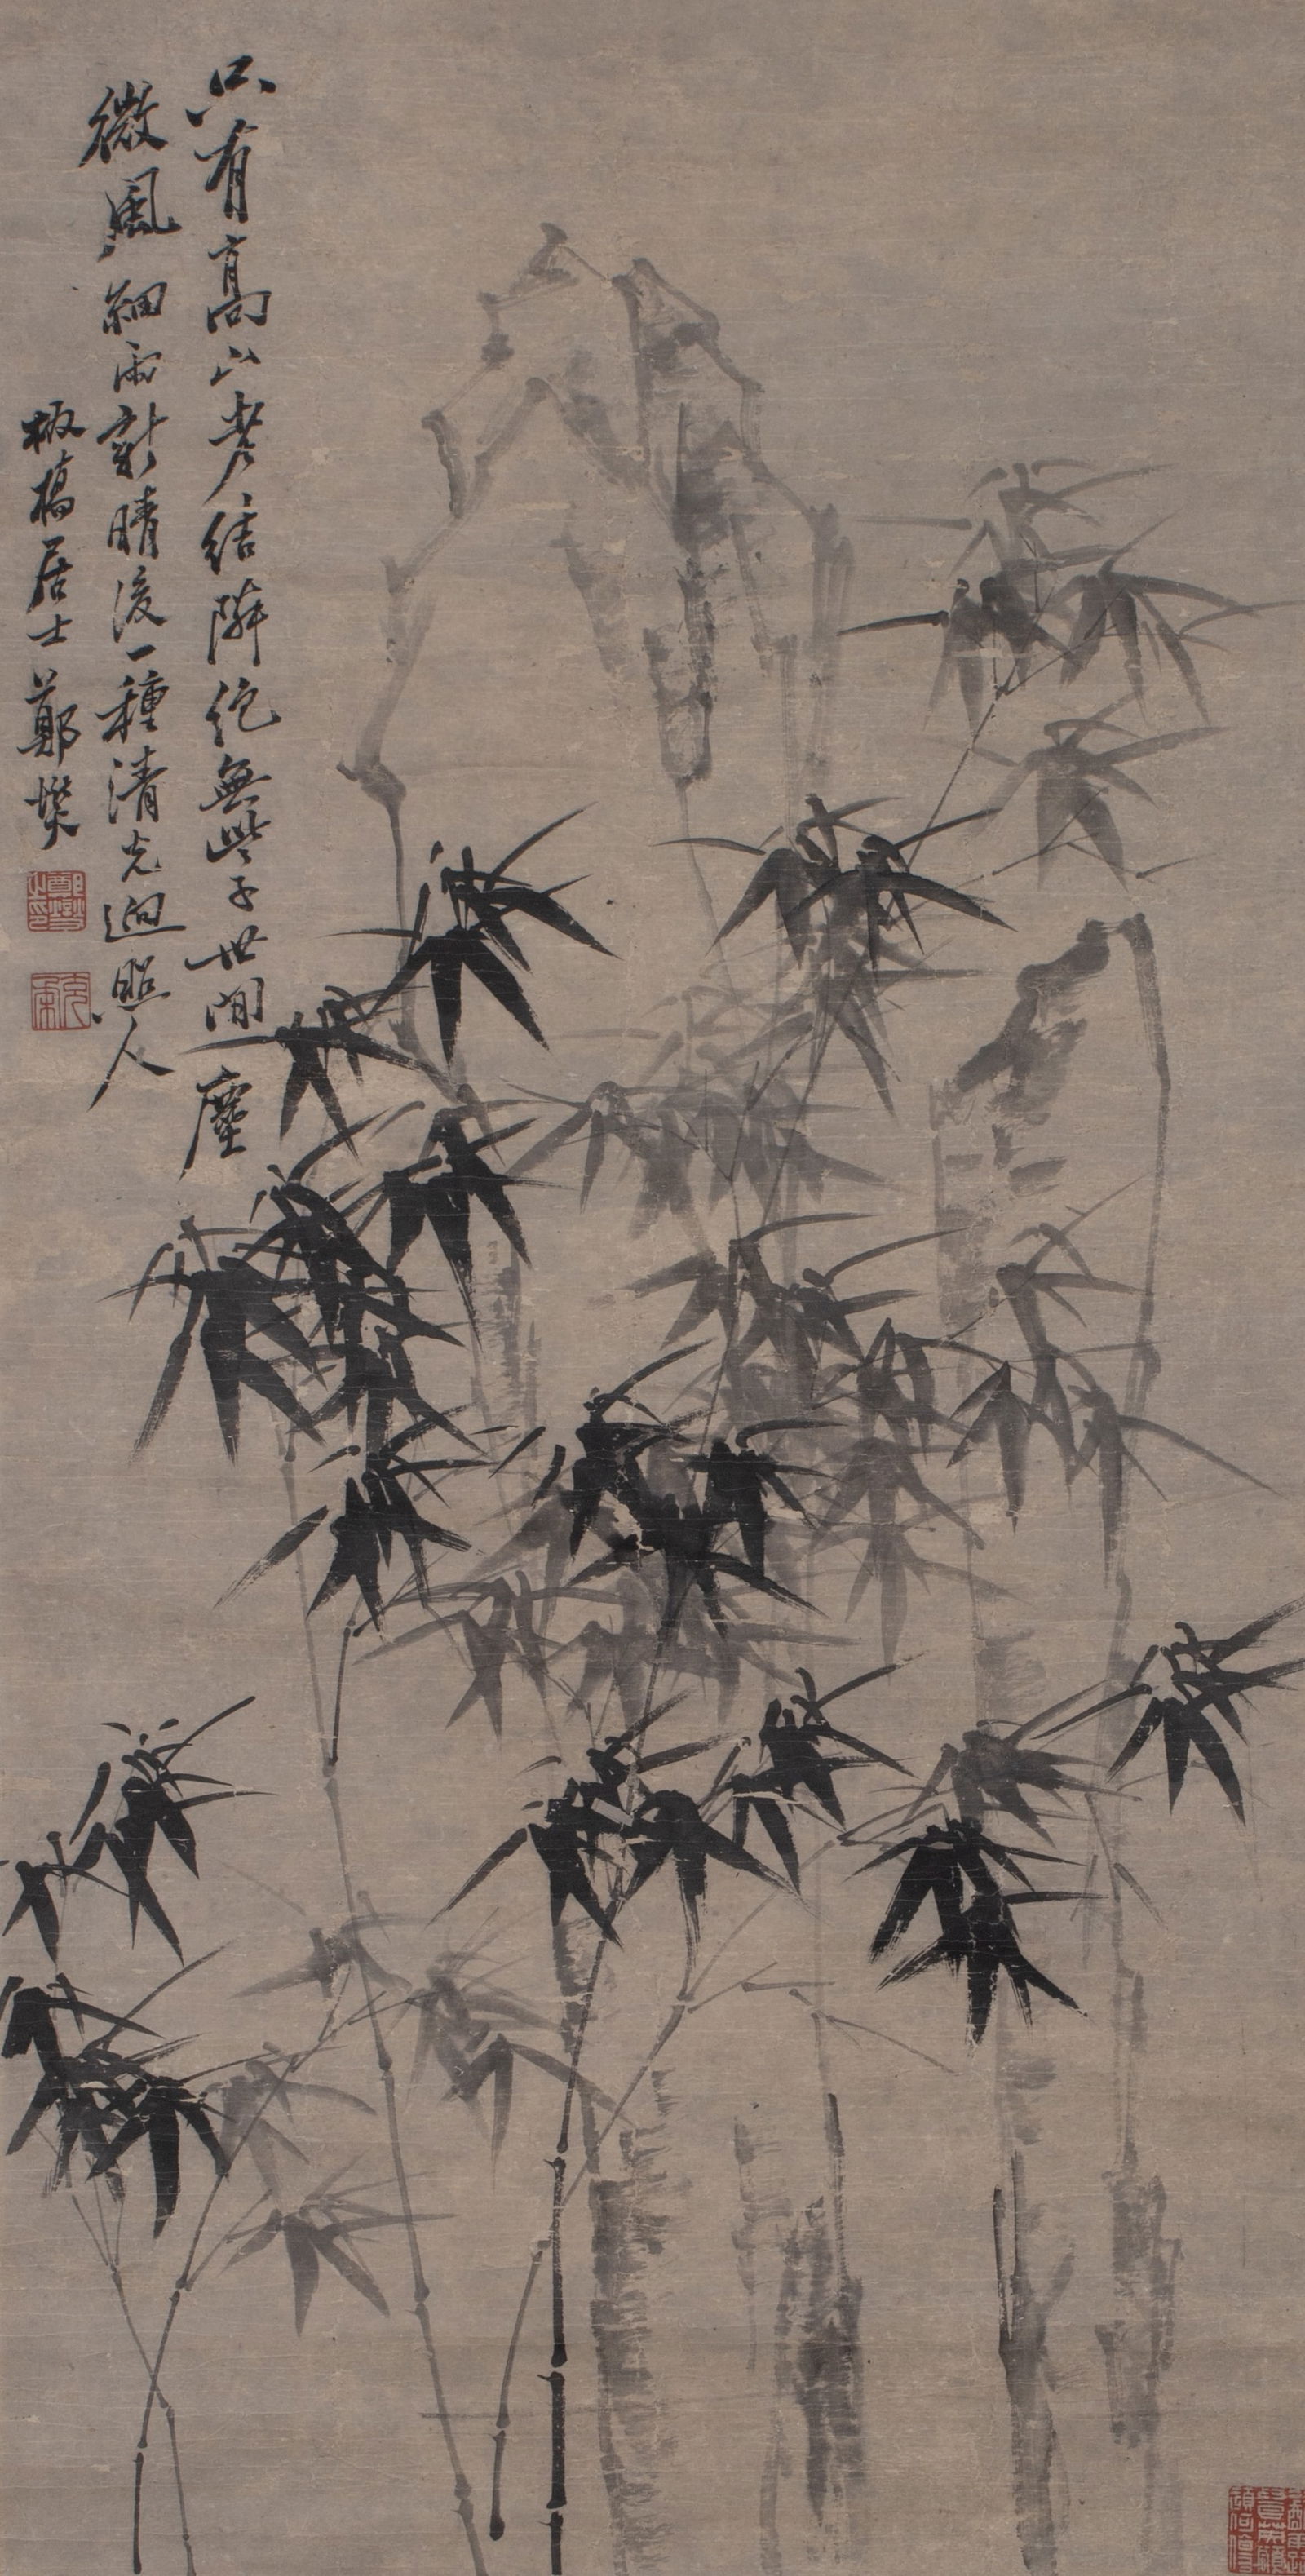 只有高山老結隣絕無些子世間塵
微風細雨新晴後一種清光逈照人
板橋居士鄭燮
鄭燮之印
克柔